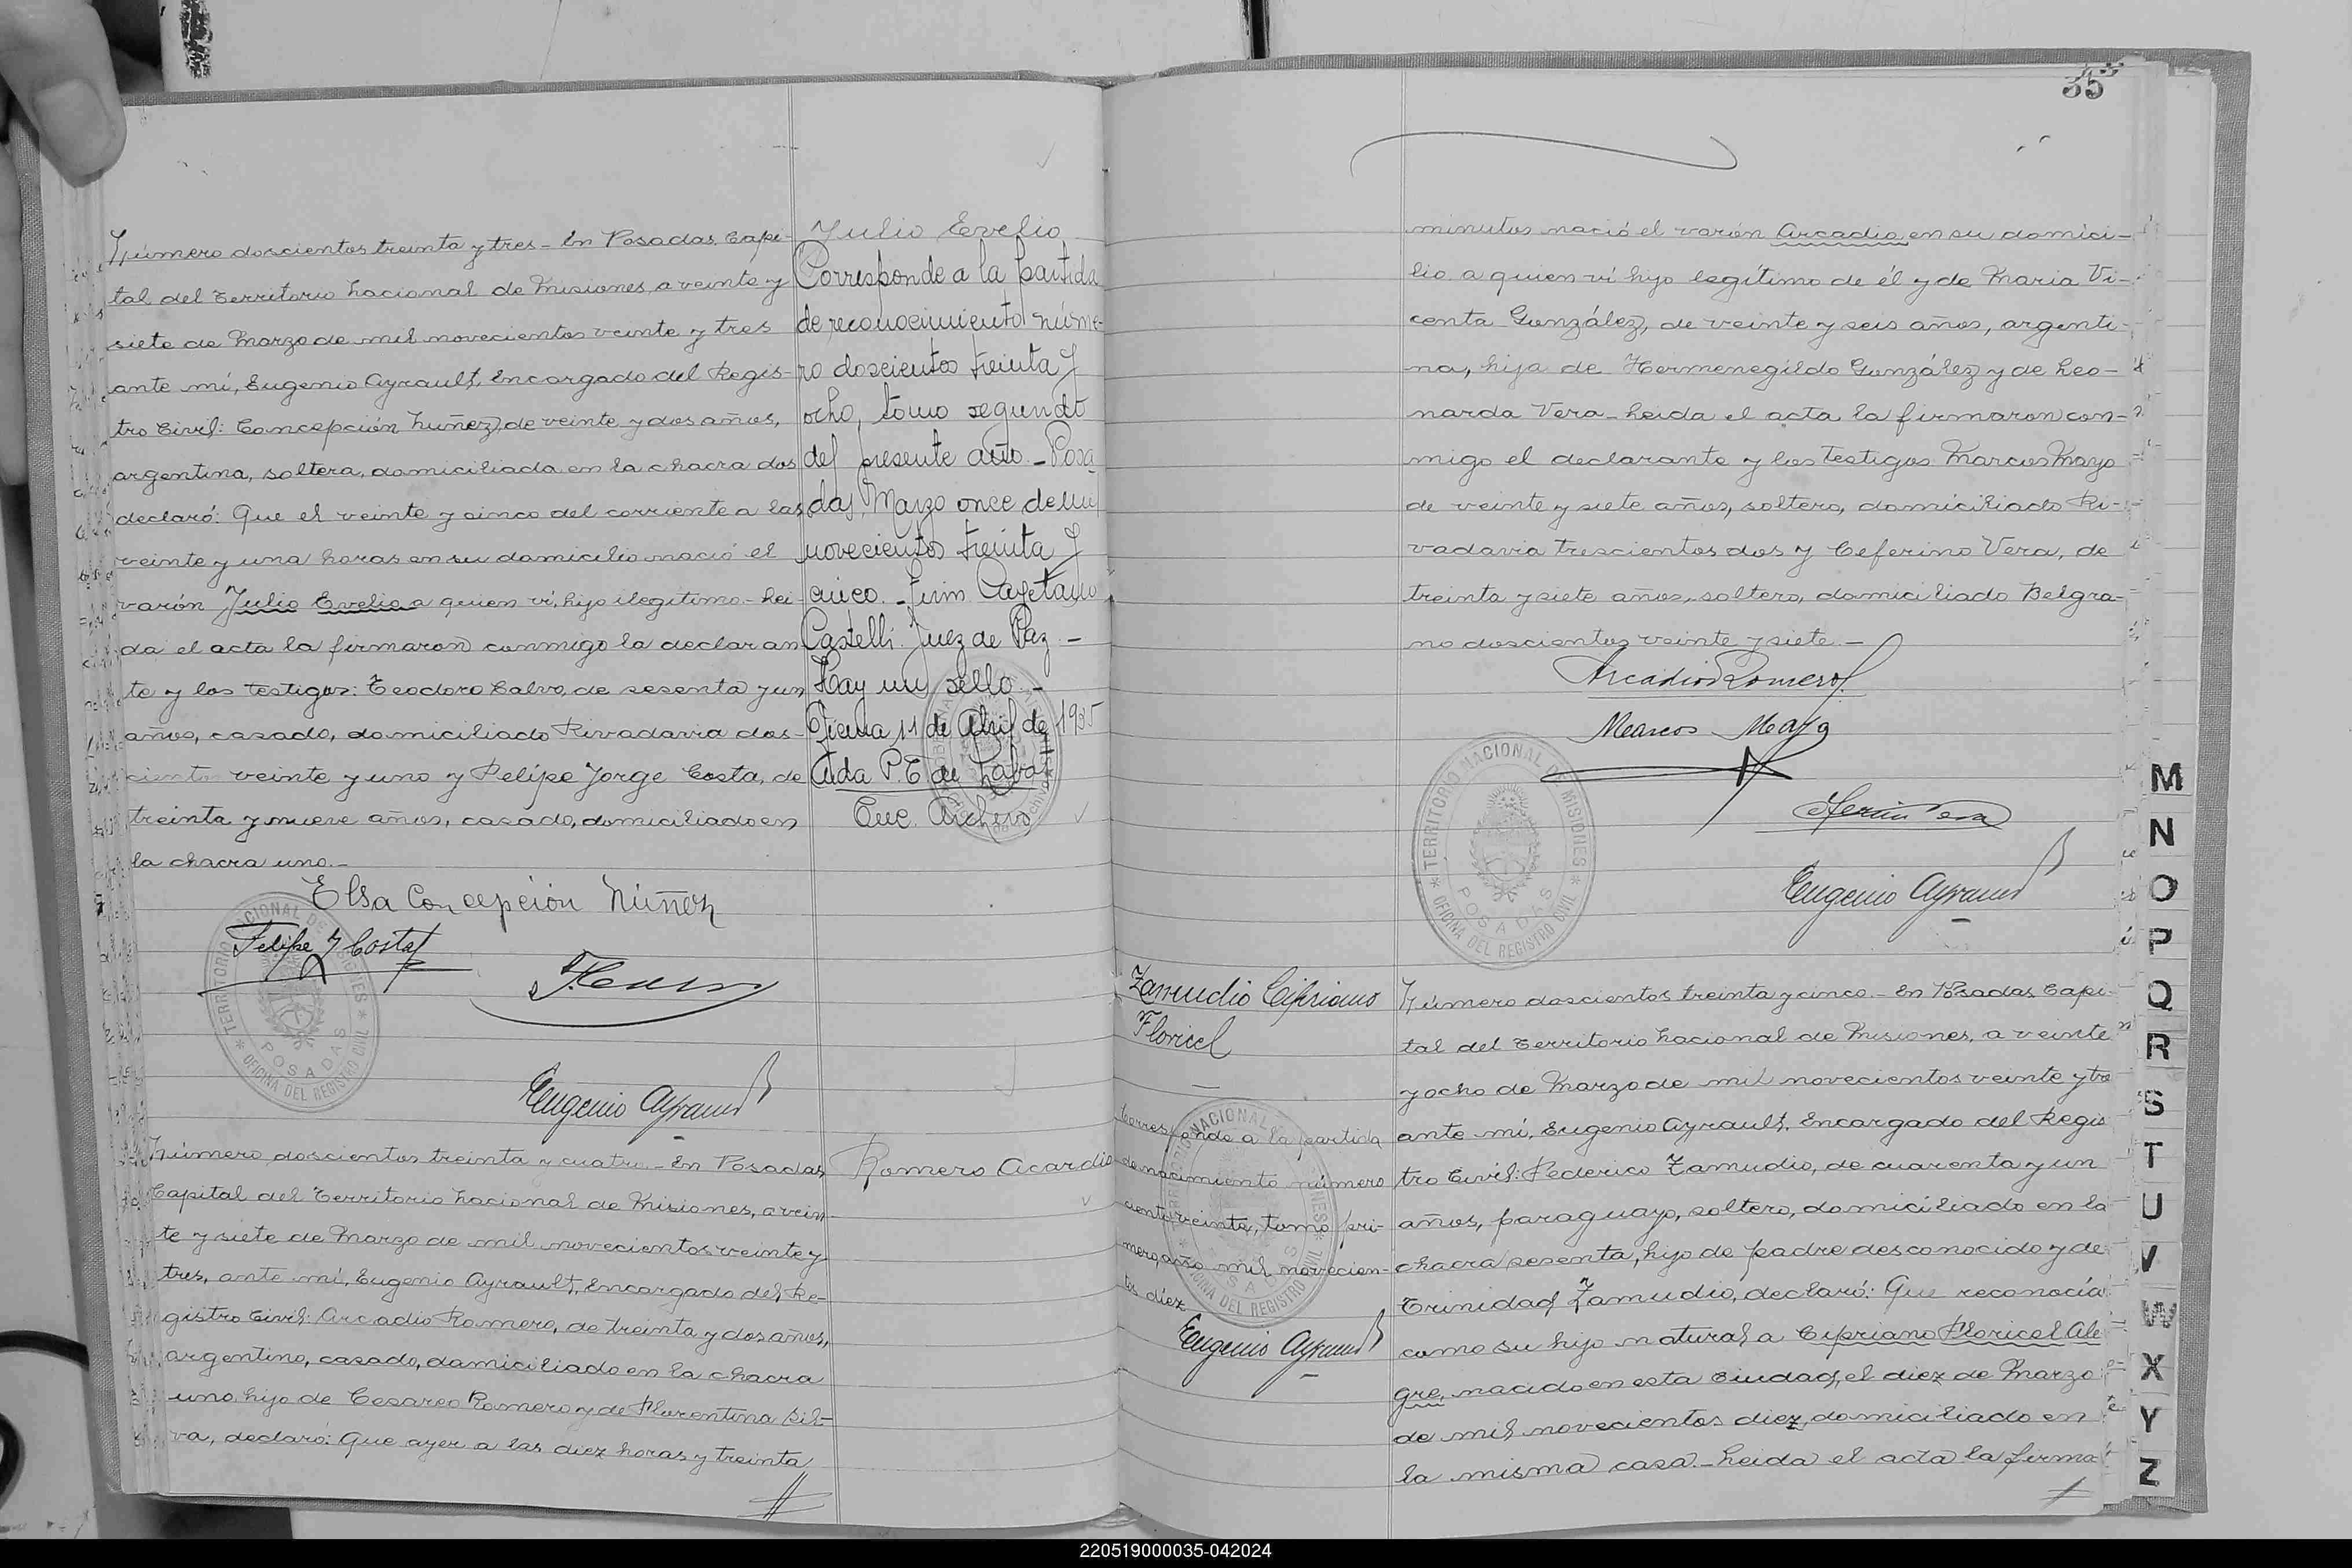 Número doscientos treinta y tres - En Posadas, Capi-
tal del Territorio Nacional de Misiones, a veinte y
siete de Marzo de mil novecientos veinte y tres
ante mí, Eugenio Ayrault, Encargado del Regis-
tro Civil: Concepción Nuñez, de veinte y dos años,
argentina, soltera, domiciliada en la chacra dos
declaró: Que el veinte y cinco del corriente a las
veinte y una horas en su domicilio nació el
varón Julio Evelio a quien ví, hijo ilegítimo - Lei-
da el acta la firmaron conmigo la declaran
te y los testigos: Teodoro Calvo, de sesenta y un
años, casado, domiciliado Rivadavia dos-
ciento veinte y uno y Felipe Jorge Costa, de
treinta y nueve años, casado, domiciliado en
la chacra uno.-
Elsa Concepción Núñez
Felipe J Costa
Eugenio Ayrault
TERRITORIO NACIONAL DE MISIONES
POSADAS
OFICINA DEL REGISTRO CIVIL
Julio Evelio
Corresponde a la partida
de reconocimiento núme-
ro doscientos treinta y
ocho, tomo segundo
del presente año - Posa
das, Marzo once de mil
novecientos treinta y
cinco. - Firm Cayetano
Castelli. Juez de Paz -
Hay un sello -
Oficina 11 de Abril de 1935
Aida P. E de
Enc. Archivo
Número doscientos treinta y cuatro - En Posadas,
Capital del Territorio Nacional de Misiones, a vein-
te y siete de Marzo de mil novecientos veinte y
tres, ante mí, Eugenio Ayrault, Encargado del Re-
gistro Civil: Arcadio Romero, de treinta y dos años,
argentino, casado, domiciliado en la chacra
uno, hijo de Cesareo Romero y de Florentina Sil-
va, declaró: Que ayer a las diez horas y treinta
Romero Acardio
35
minutos nació el varón Arcadio, en su domici-
lio a quien ví hijo legítimo de él y de Maria Vi-
centa González, de veinte y seis años, argenti-
na, hija de Hermenegildo González y de Leo-
narda Vera - Leida el acta la firmaron con-
migo el declarante y los testigos Marcos Mayo
de veinte y siete años, soltero, domiciliado Ri-
vadavia trescientos dos y Ceferino Vera, de
treinta y siete años, soltero, domiciliado Belgra-
no doscientos veinte y siete. -
Arcadio Romero
Marcos Mayo
Eugenio Ayrault
TERRITORIO NACIONAL DE MISIONES
POSADAS
OFICINA DEL REGISTRO CIVIL
Zamudio Cipriano
Floricel
Corresponde a la partida
de nacimiento número
ciento veinte, tomo pri-
mero, año mil novecien-
tos diez
Eugenio Ayrault
OFICINA DEL REGISTRO CIVIL
Número doscientos treinta y cinco. - En Posadas, Capi-
tal del Territorio Nacional de Misiones, a veinte
y ocho de Marzo de mil novecientos veinte y tre
ante mí, Eugenio Ayrault, Encargado del Regis
tro Civil: Federico Zamudio, de cuarenta y un
años, paraguayo, soltero, domiciliado en la
chacra sesenta, hijo de padre desconocido y de
Trinidad Zamudio, declaró: Que reconocía
como su hijo natural a Cipriano Floricel Ale
gre, nacido en esta Ciudad, el diez de Marzo
de mil novecientos diez, domiciliado en
la misma casa. - Leida el acta la firma
M
N
O
P
Q
R
S
T
U
V
W
X
Y
Z
220519000035-042024